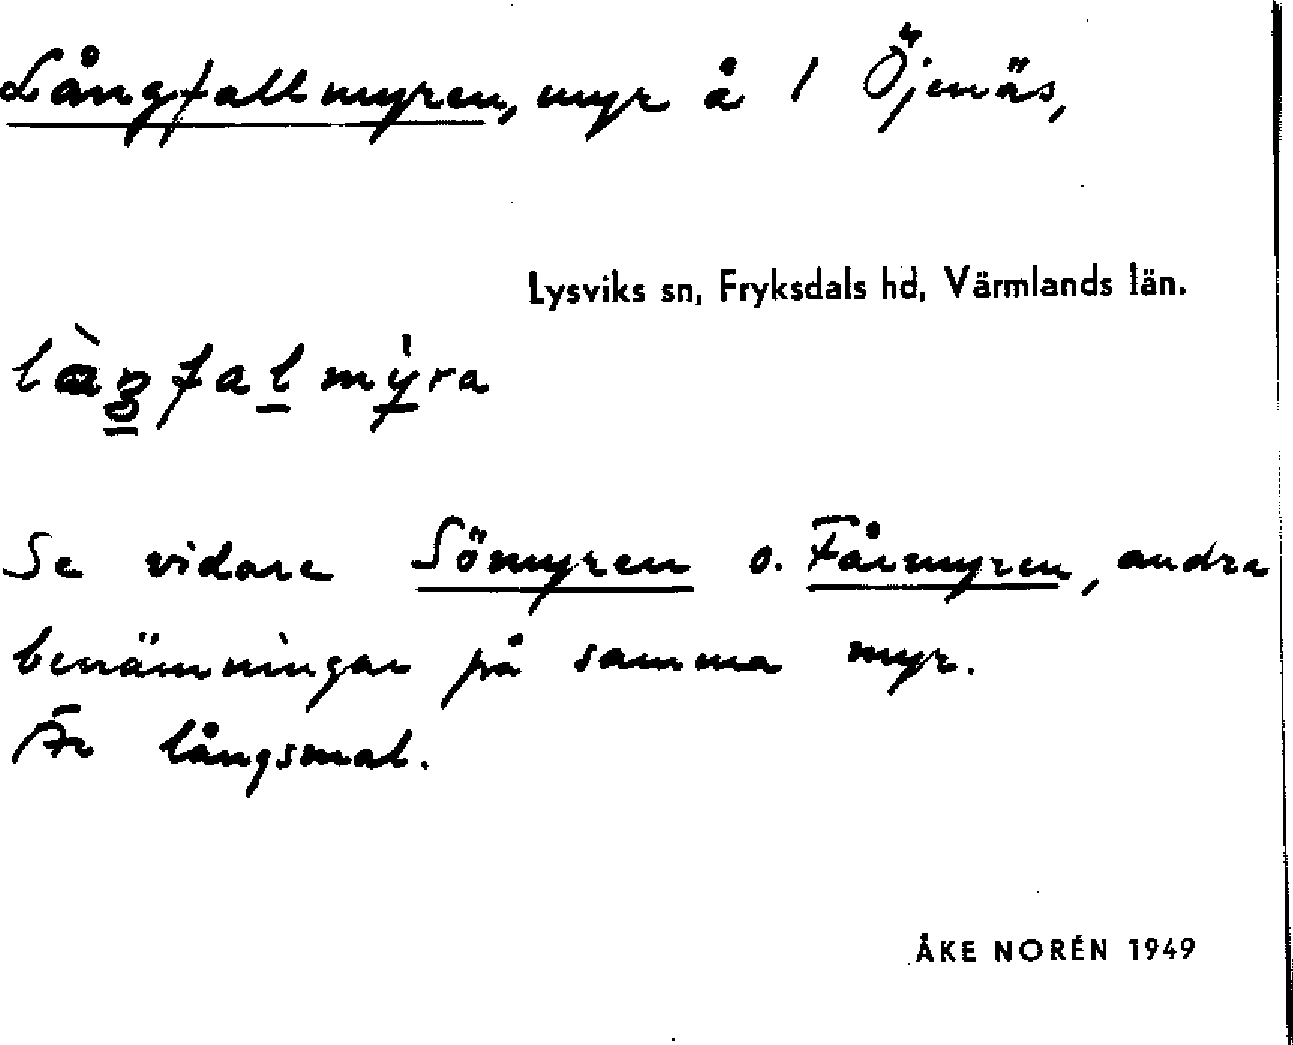 Långfallmyren, myr å 1 Öjenäs,
Lysviks sn, Fryksdals hd, Värmlands län.
Se vidare Sömyren o. Fårmyren, andra
benämningar på samma myr.
Är långsmal.
ÅKE NORÉN 1949